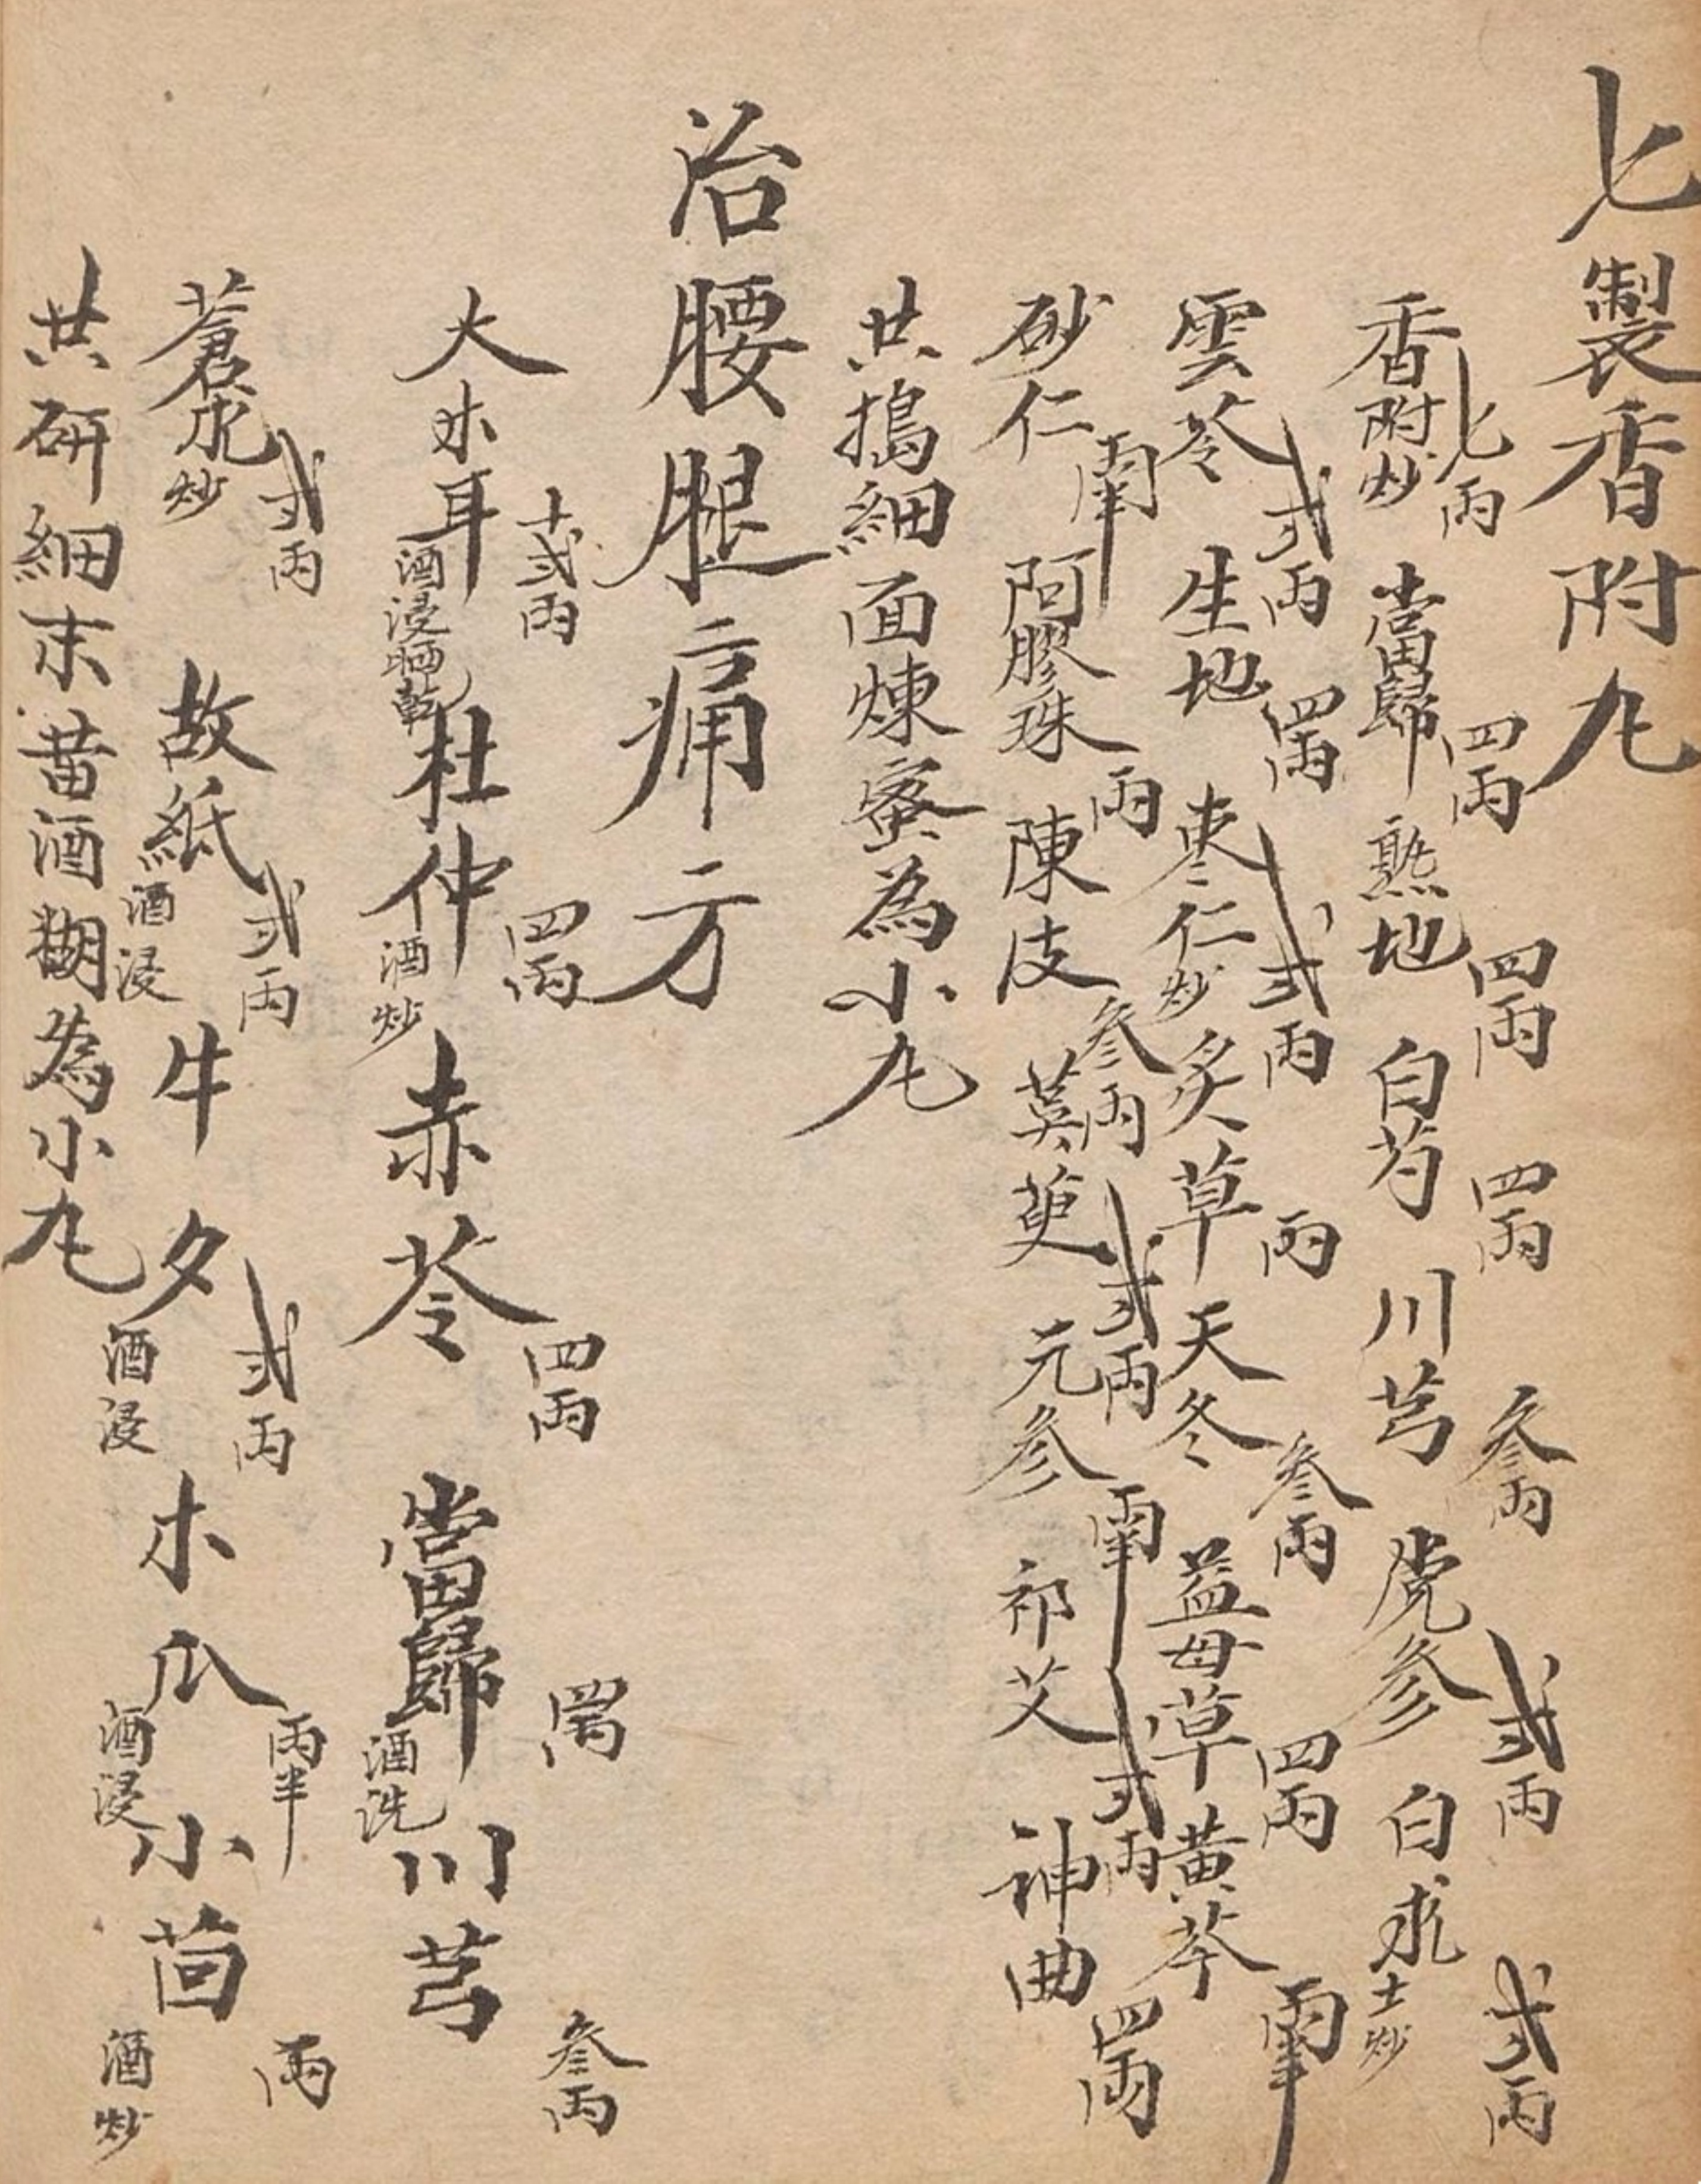 七製香附丸
香附炒七兩 當歸四兩 熟地四兩 白芍四兩 川芎叁兩 党参弍兩 白朮土炒弍兩
雲苓弍兩 生地四兩 枣仁炒弍兩 炙草兩 天冬叁兩 益母草四兩 黄芩兩半
砂仁兩半 阿膠珠兩 陳皮叁兩 萸萸弍兩 元参兩半 祁艾弍兩 神曲四兩
共搗細面煉蜜為小丸
治腰腿痛方
大木耳酒浸晒乾十弍兩 杜仲酒炒四兩 赤苓四兩 當歸酒洗四兩 川芎叁兩
蒼朮炒弍兩 故紙酒浸弍兩 牛夕酒浸弍兩 木瓜酒浸兩半 小茴酒炒兩
共研細末黄酒糊為小丸